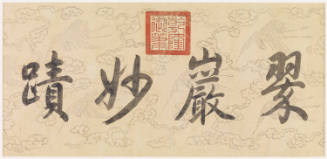 翠巖妙蹟